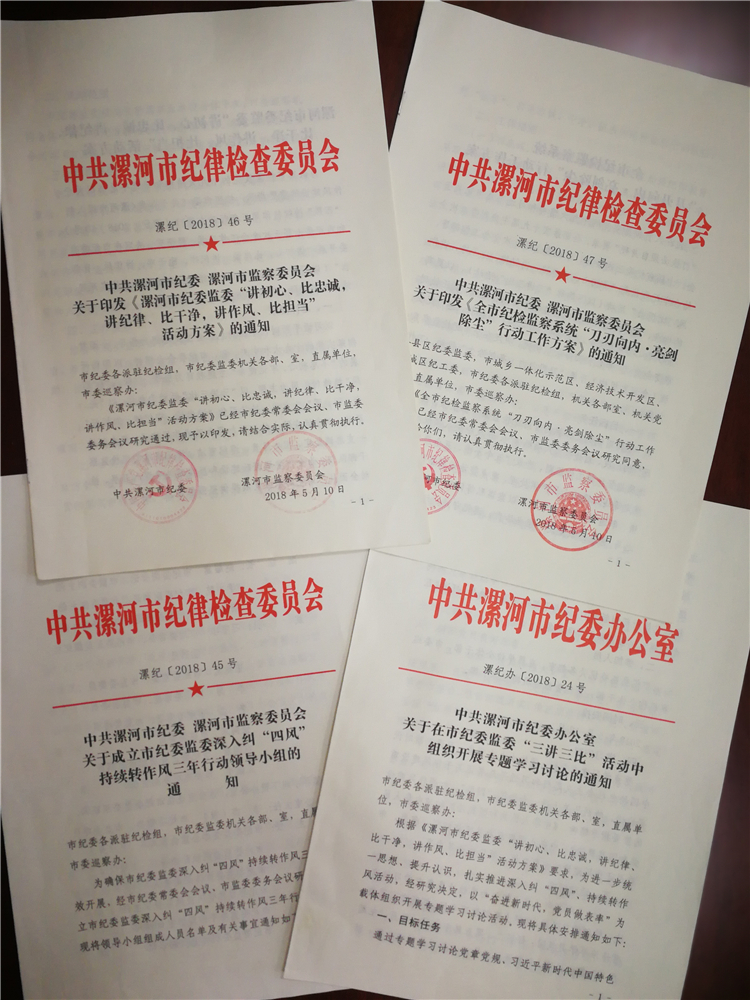 中共漯河市纪律检查委员会
漯纪〔2018〕46号
中共漯河市纪委 漯河市监察委员会
关于印发《漯河市纪委监委“讲初心、比忠诚，
讲纪律、比干净，讲作风、比担当”
活动方案》的通知
市纪委各派驻纪检组，市纪委监委机关各部、室，直属单位，
市委巡察办：
《漯河市纪委监委“讲初心、比忠诚，讲纪律、比干净，
讲作风、比担当”活动方案》已经市纪委常委会会议、市监委
委务会议研究通过，现予以印发，请结合实际，认真贯彻执行。
中共漯河市纪委 漯河市监察委员会
2018年5月10日
-1-
中共漯河市纪律检查委员会
漯纪〔2018〕47号
中共漯河市纪委 漯河市监察委员会
关于印发《全市纪检监察系统“刀刃向内·亮剑
除尘”行动工作方案》的通知
县区纪委监委，市城乡一体化示范区、经济技术开发区、
城区纪工委，市纪委各派驻纪检组，机关各部室、机关党
直属单位，市委巡察办：
《全市纪检监察系统“刀刃向内·亮剑除尘”行动工作
已经市纪委常委会会议，市监委委务会议研究同意，
你们，请认真贯彻执行。
河市纪委 漯河市监察委员会
2018年5月10日
市监察委员
-1-
中共漯河市纪律检查委员会
漯纪〔2018〕45号
中共漯河市纪委 漯河市监察委员会
关于成立市纪委监委深入纠“四风”
持续转作风三年行动领导小组的
通 知
市纪委各派驻纪检组，市纪委监委机关各部、室，直属
市委巡察办：
为确保市纪委监委深入纠“四风”持续转作风三
效开展，经市纪委常委会会议、市监委委务会议研
立市纪委监委深入纠“四风”持续转作风三年行
现将领导小组组成人员名单及有关事宜通知如
中共漯河市纪委办公室
漯纪办〔2018〕24号
中共漯河市纪委办公室
关于在市纪委监委“三讲三比”活动中
组织开展专题学习讨论的通知
市纪委各派驻纪检组，市纪委监委机关各部、室，直属单
位，市委巡察办：
根据《漯河市纪委监委“讲初心、比忠诚，讲纪律、
比干净，讲作风、比担当”活动方案》要求，为进一步统
一思想、提升认识，扎实推进深入纠“四风”、持续转作
风活动，经研究决定，以“奋进新时代，党员做表率”为
载体组织开展专题学习讨论活动，现将具体安排通知如下：
一、目标任务
通过专题学习讨论党章党规、习近平新时代中国特色
-1-